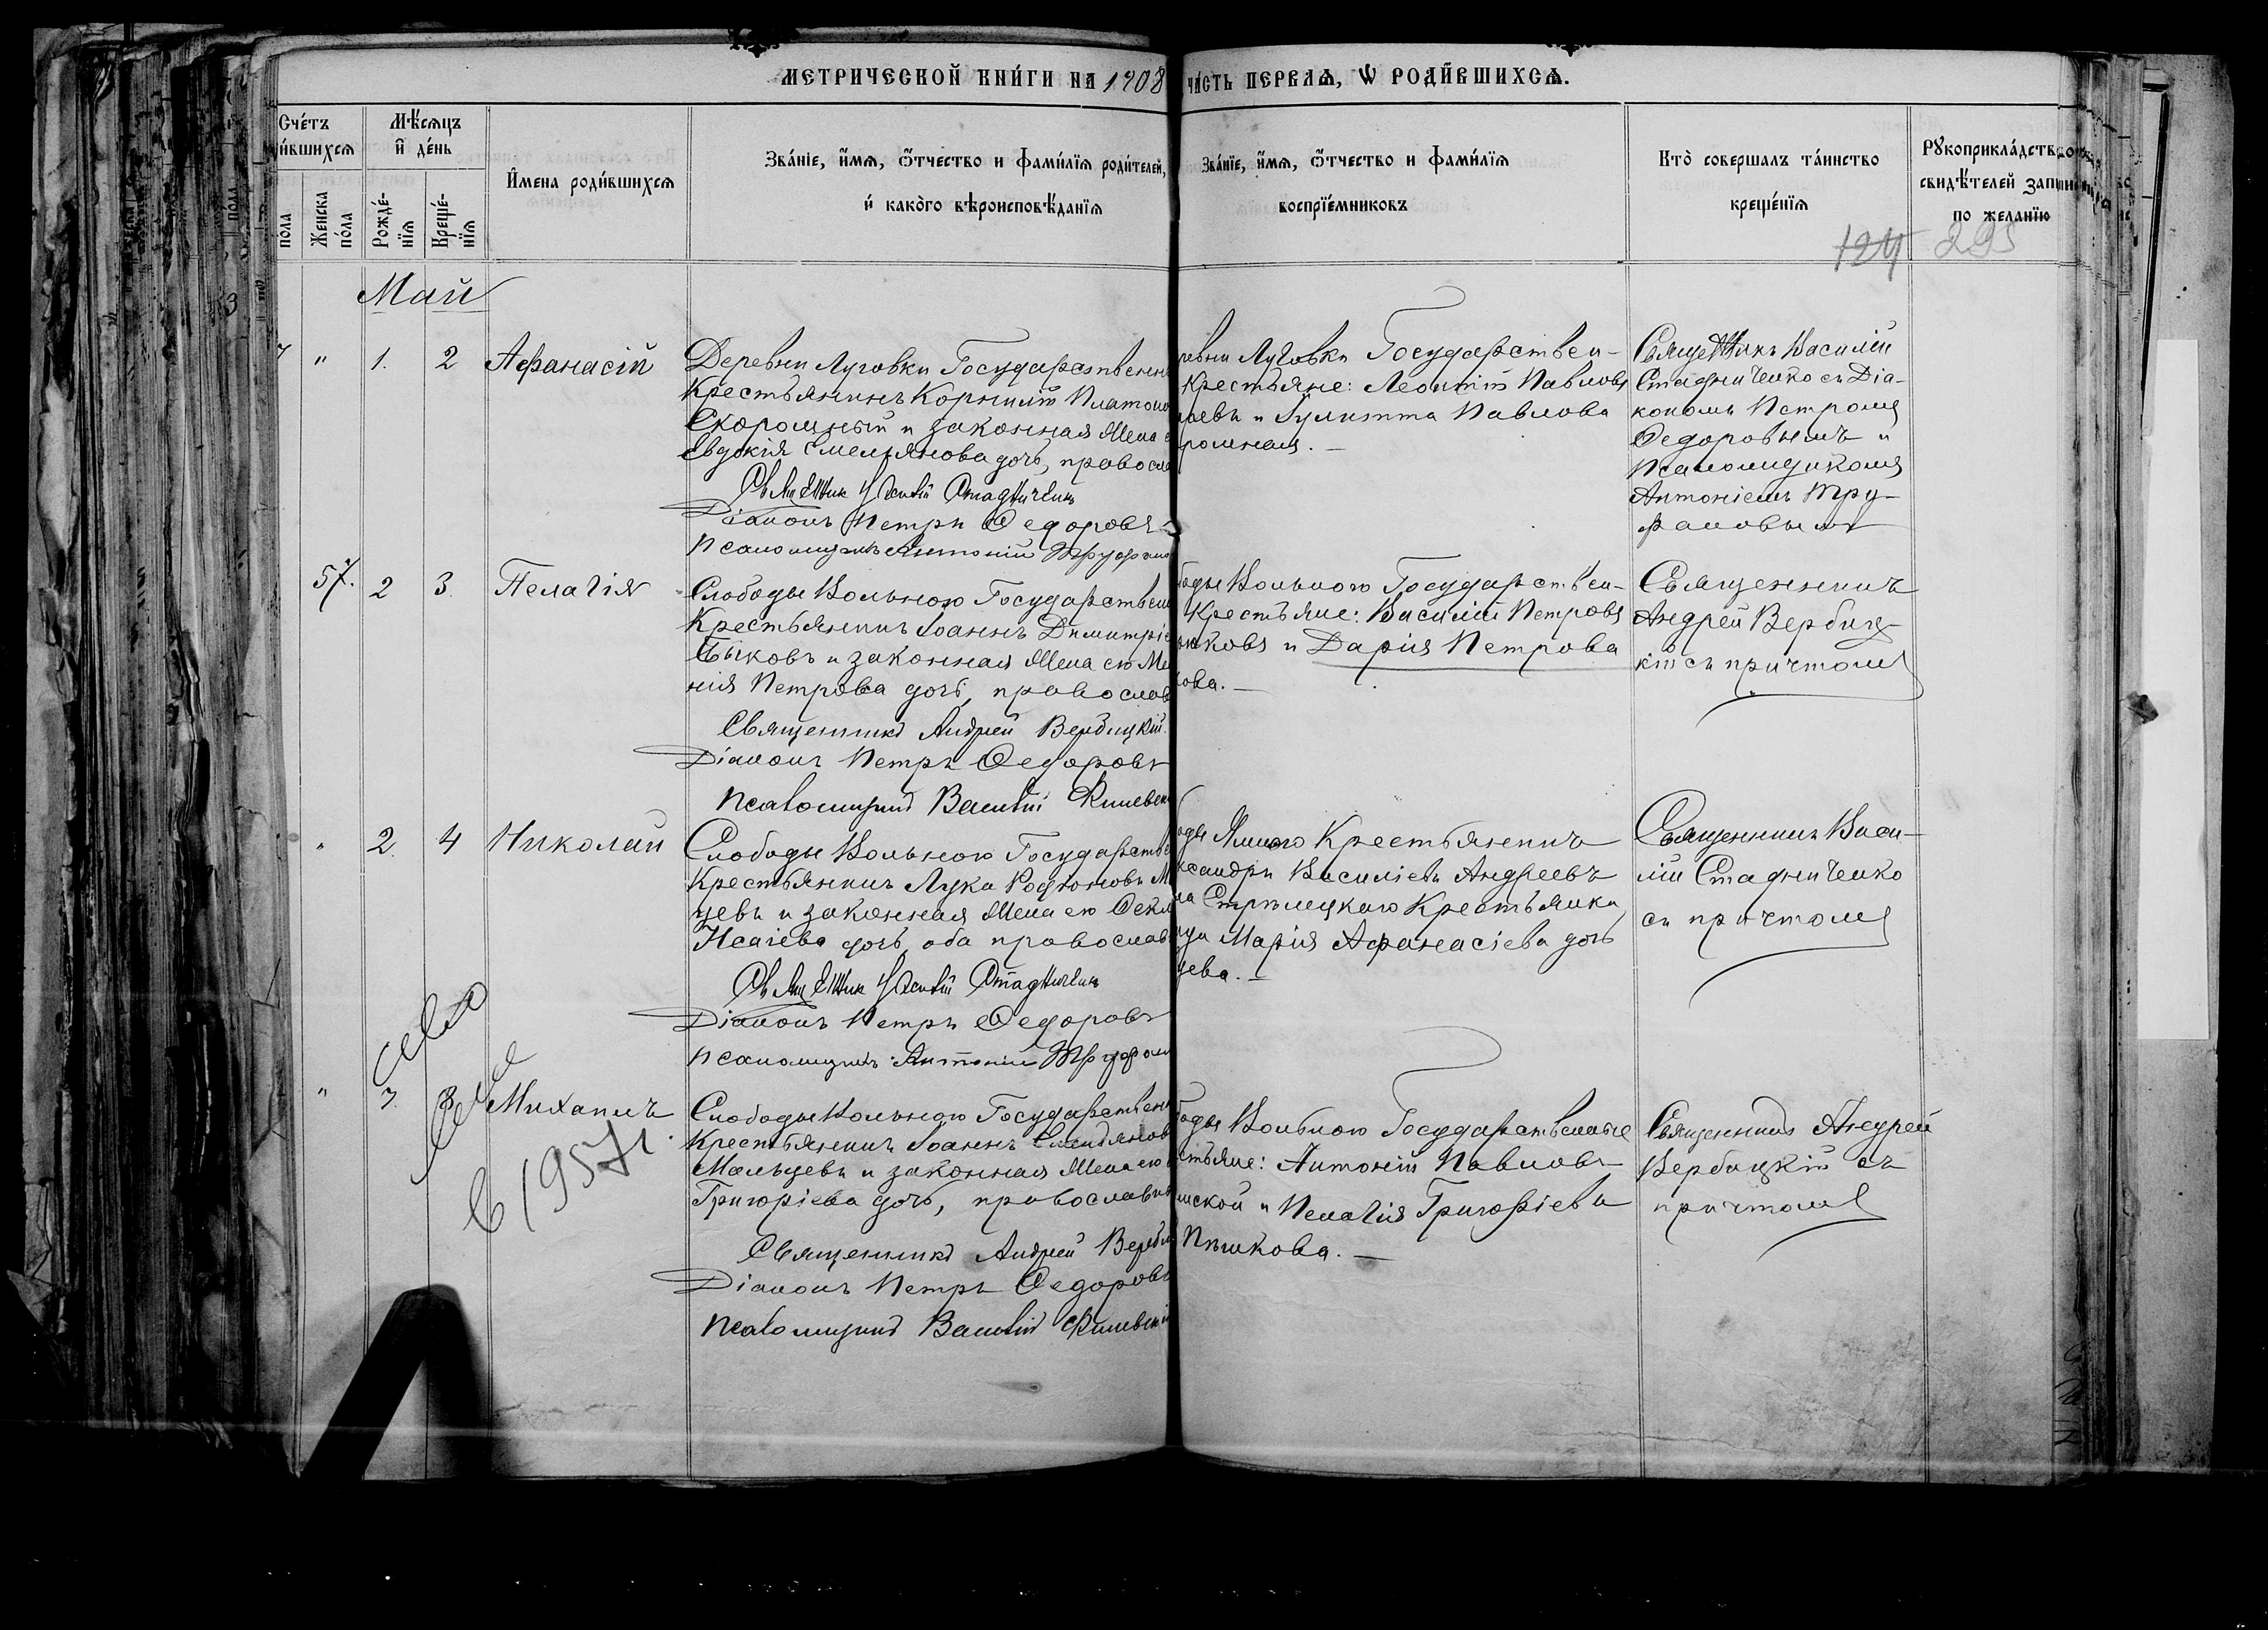 МЕТРИЧЕСКОЙ КНИ́ГИ НА 1908
ЧА́СТЬ ПЕРВАѦ, Ѡ РОДИ́ВШИХСѦ.
Сче́тъ
и́вшихсѧ
Мѣ́сѧцъ
и҆ де́нь
И҆мена роди́вшихсѧ
Зва́нїе, и҆́мѧ, ѻ҆́тчество и фами́лїѧ роди́телей,
и҆ како́го вѣроисповѣ́данїѧ
Зва́нїе, и҆́мѧ, ѻ҆́тчество и фами́лїѧ
воспрїе́мниковъ
Кто̀ соверша́лъ та́инство
креще́нїѧ
Рꙋкоприкла́дство
свидѣ́телей запи
по жела́нїю
по́ла
Же́нска
по́ла
Рожде́-
нїѧ
Креще́-
нїѧ
124 295
Май
" 1. 2 Аѳанасій
Деревни Луговки Государственн
Крестьянинъ Корнилій Платоно
Скоромный и законная Жена е
Евдокія Емельянова дочь, правосла
Священник Василій Стадниченк
Діаконъ Петръ Ѳедоровъ
Псаломщикъ Антоній Труфано
ревни Луговки Государствен-
Крестьяне: Леонтій Павловъ
и Іулитта Павлова
ромная. —
Священникъ Василій
Стадниченко съ Діа-
кономъ Петромъ
Ѳедоровымъ и
Псаломщикомъ
Антоніемъ Тру-
фановымъ
57. 2 3. Пелагія
Слободы Вольного Государствен
Крестьянинъ Іоаннъ Димитріе
Быковъ и законная Жена его Ме
нія Петрова дочь, православ
Священникъ Андрей Вербицкій.
Діаконъ Петръ Ѳедоровъ
Псаломщикъ Василій
боды Вольного Государствен-
Крестьяне: Василій Петровъ
ковъ и Дарія Петрова
кова. —
Священникъ
Андрей Вербиц-
кій съ причтомъ
" 2. 4 Николай
Слободы Вольного Государстве
Крестьянинъ Лука Родіоновъ М
цевъ и законная Жена его Ѳекл
Исаіева дочь, оба православ
Священник Василій Стадниченк
Діаконъ Петръ Ѳедоровъ
Псаломщикъ Антоній Труфан
оды Ямного Крестьянинъ
ксандръ Василіевъ Андреевъ
на Стрѣлецкаго Крестьянка
Марія Аѳанасіева дочь
цева. —
Священникъ Васи-
лій Стадниченко
съ причтомъ
" 3. Михаилъ
6 1957г.
Слободы Вольного Государственн
Крестьянинъ Іоаннъ Емельянов
Мальцевъ и законная Жена его
Григоріева дочь, православн
Священникъ Андрей Вербиц
Діаконъ Петръ Ѳедоровъ
Псаломщикъ Василій
боды Вольного Государственные
стьяне: Антоній Павловъ
нской и Пелагія Григоріева
Пѣшкова. —
Священникъ Андрей
Вербицкій съ
причтомъ